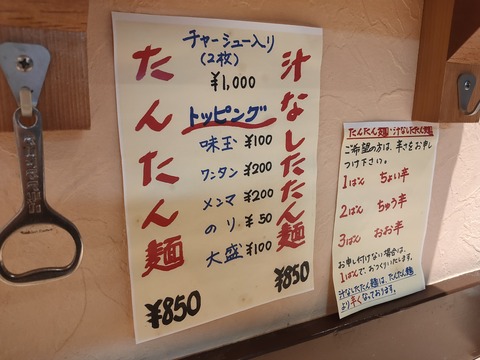 汁なしたんたん麺
¥850
チャーシュー入り
(2枚)
¥1,000
トッピング
味玉 ¥100
ワンタン ¥200
メンマ ¥200
のり ¥50
大盛 ¥100
たんたん麺
¥850
たんたん麺・汁なしたんたん麺
ご希望の方は、辛さをお申し
つけ下さい。
1ばん ちょい辛
2ばん ちゅう辛
3ばん おお辛
お申し付けない場合は、
1ばんで、おつくりいたします。
汁なしたんたん麺は、たんたん麺
より辛くなっております。